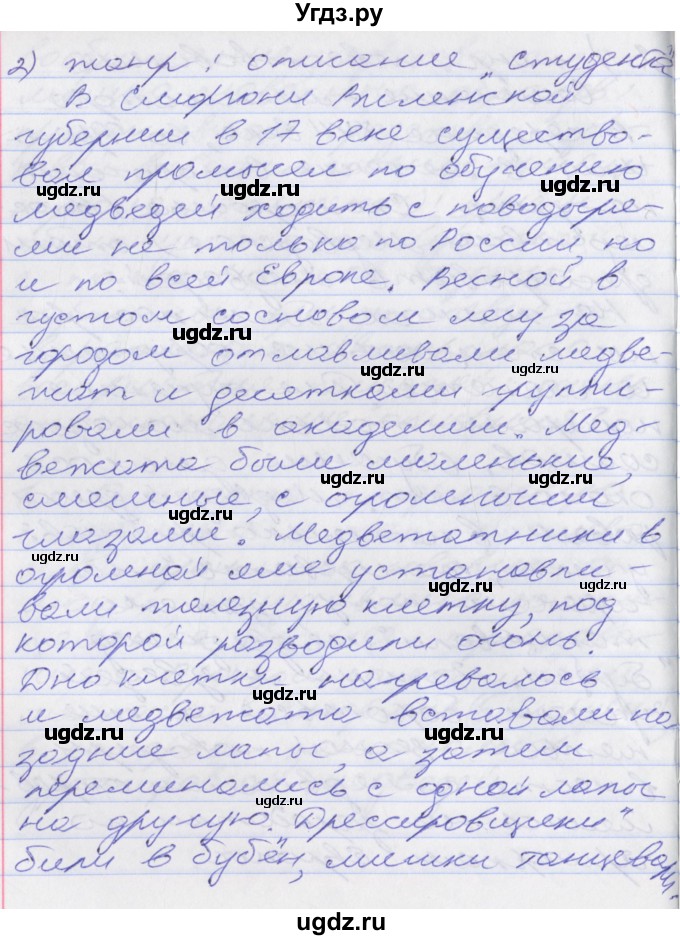 Угдз.ру
2) жанр: описание „студента"
В Сморгони Виленской
губернии в 17 веке существо-
вал промысел по обучению
ugdz.ru ugdz.ru
медведей ходить с поводыря-
ми не только по России, но
и по всей Европе. Весной в
густом сосновом лесу за
ugdz.ru
городом отлавливали медве-
ugdz.ru ugdz.ru
жат и десятками группи-
ровали в академии. Мед-
вежата были маленькие,
ugdz.ru ugdz.ru
смешные, с огромными
ugdz.ru
глазами. Медвежатники в
ugdz.ru
огромной яме устанавли-
ugdz.ru
вали железную клетку, под
которой разводили огонь.
ugdz.ru
Дно клетки нагревалось
ugdz.ru
и медвежата вставали на
ugdz.ru
задние лапы, а затем
переминались с одной лапы
ugdz.ru
на другую. Дрессировщики"
ugdz.ru
били в бубён, мишки танцевали.
ugdz.ru